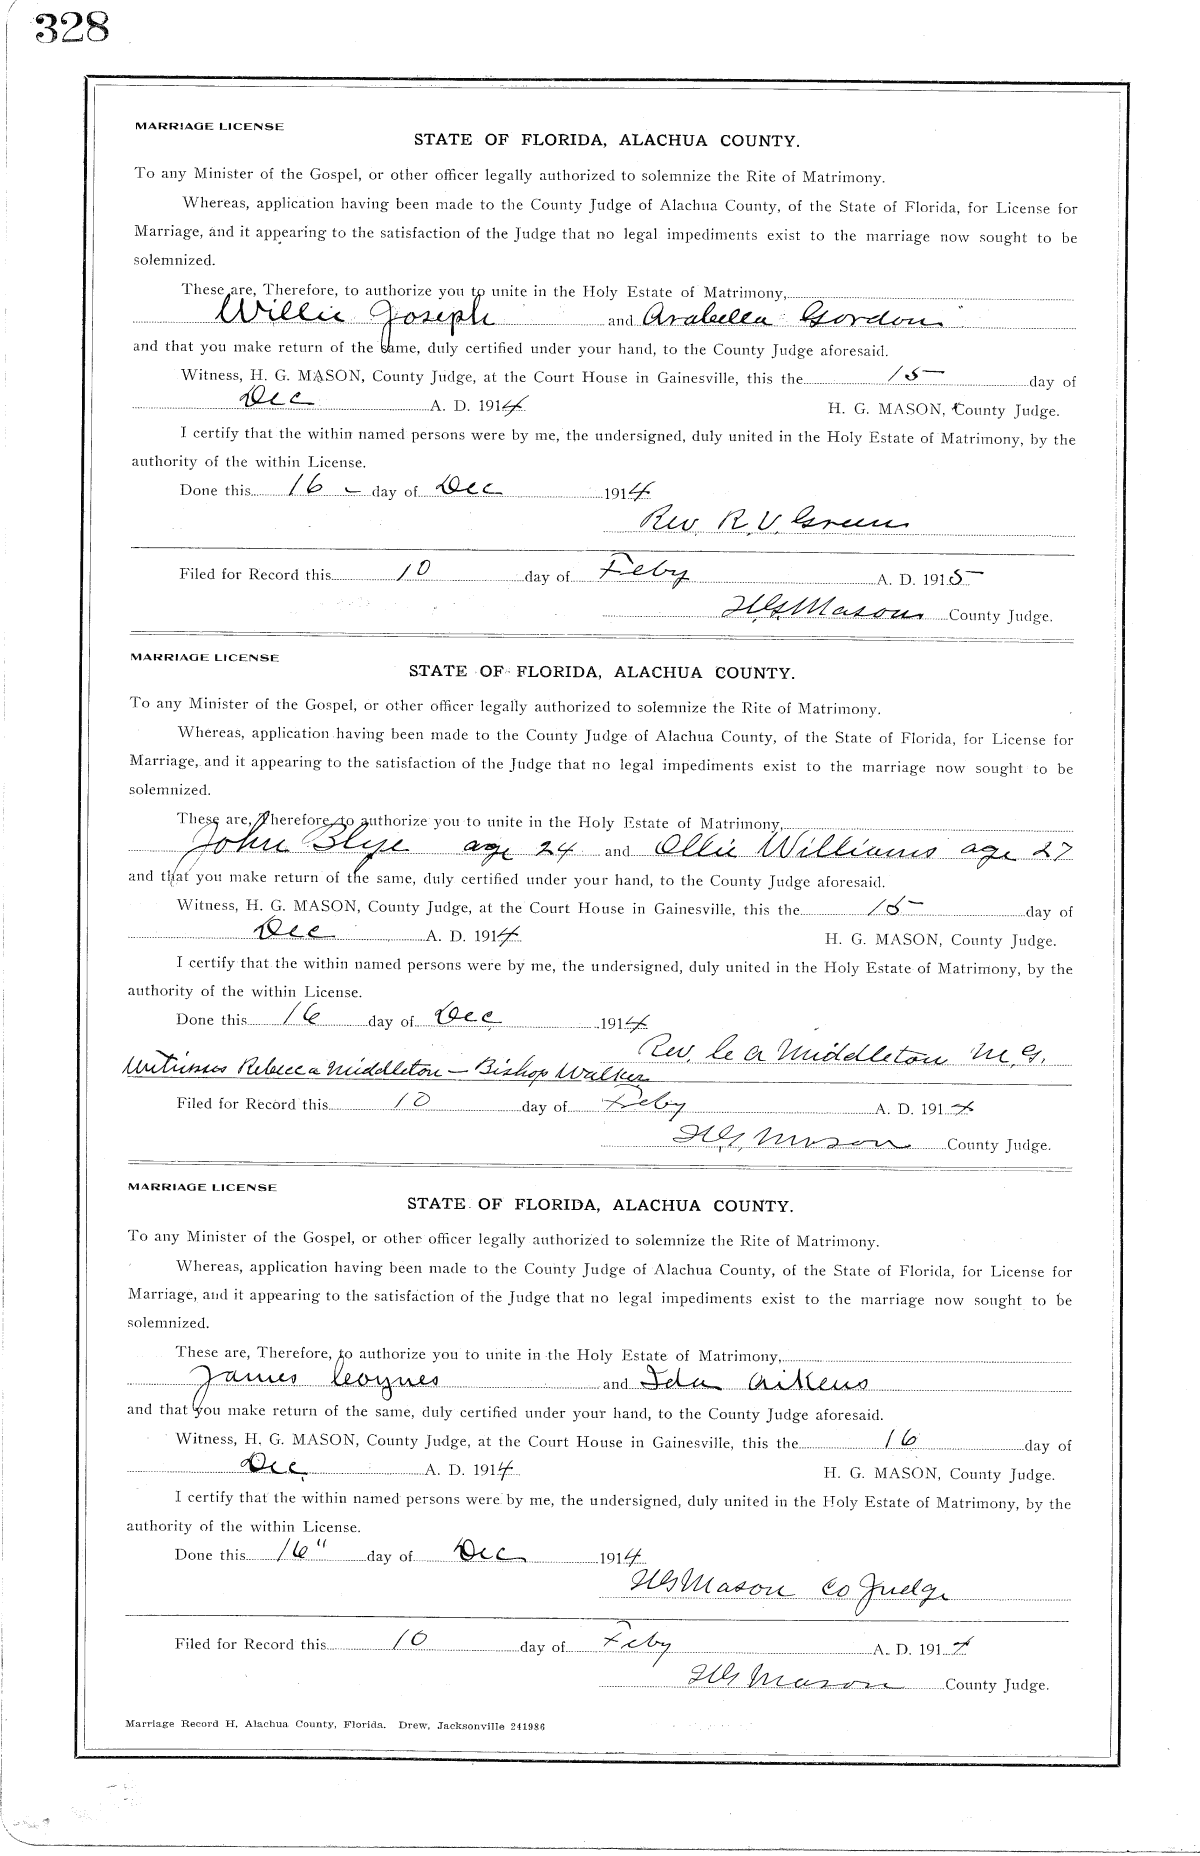 328
MARRIAGE LICENSE
STATE OF FLORIDA, ALACHUA COUNTY.
To any Minister of the Gospel, or other officer legally authorized to solemnize the Rite of Matrimony.
Whereas, application having been made to the County Judge of Alachua County, of the State of Florida, for License for
Marriage, and it appearing to the satisfaction of the Judge that no legal impediments exist to the marriage now sought to be
solemnized.
These are, Therefore, to authorize you to unite in the Holy Estate of Matrimony,
Willie Joseph and Arabella Gordon
and that you make return of the same, duly certified under your hand, to the County Judge aforesaid.
Witness, H. G. MASON, County Judge, at the Court House in Gainesville, this the 15 day of
Dec A. D. 1914 H. G. MASON, County Judge.
I certify that the within named persons were by me, the undersigned, duly united in the Holy Estate of Matrimony, by the
authority of the within License.
Done this 16 – day of Dec 1914
Rev. R. V. Green
Filed for Record this 10 day of Feby A. D. 1915
H G Mason County Judge.
MARRIAGE LICENSE
STATE OF FLORIDA, ALACHUA COUNTY.
To any Minister of the Gospel, or other officer legally authorized to solemnize the Rite of Matrimony.
Whereas, application having been made to the County Judge of Alachua County, of the State of Florida, for License for
Marriage, and it appearing to the satisfaction of the Judge that no legal impediments exist to the marriage now sought to be
solemnized.
These are, Therefore, to authorize you to unite in the Holy Estate of Matrimony,
John Blye age 24 and Ollie Williams age 27
and that you make return of the same, duly certified under your hand, to the County Judge aforesaid.
Witness, H. G. MASON, County Judge, at the Court House in Gainesville, this the 15 day of
Dec A. D. 1914 H. G. MASON, County Judge.
I certify that the within named persons were by me, the undersigned, duly united in the Holy Estate of Matrimony, by the
authority of the within License.
Done this 16 day of Dec 1914
Rev. C A Middleton M. G.
Witness Rebecca Middleton – Bishop Walker
Filed for Record this 10 day of Feby A. D. 191
H G Mason County Judge.
MARRIAGE LICENSE
STATE OF FLORIDA, ALACHUA COUNTY.
To any Minister of the Gospel, or other officer legally authorized to solemnize the Rite of Matrimony.
Whereas, application having been made to the County Judge of Alachua County, of the State of Florida, for License for
Marriage, and it appearing to the satisfaction of the Judge that no legal impediments exist to the marriage now sought to be
solemnized.
These are, Therefore, to authorize you to unite in the Holy Estate of Matrimony,
James Coynes and Ida Aikens
and that you make return of the same, duly certified under your hand, to the County Judge aforesaid.
Witness, H. G. MASON, County Judge, at the Court House in Gainesville, this the 16 day of
Dec A. D. 1914 H. G. MASON, County Judge.
I certify that the within named persons were by me, the undersigned, duly united in the Holy Estate of Matrimony, by the
authority of the within License.
Done this 16" day of Dec 1914
H G Mason Co Judge
Filed for Record this 10 day of Feby A. D. 191
H G Mason County Judge.
Marriage Record H, Alachua County, Florida. Drew, Jacksonville 241986